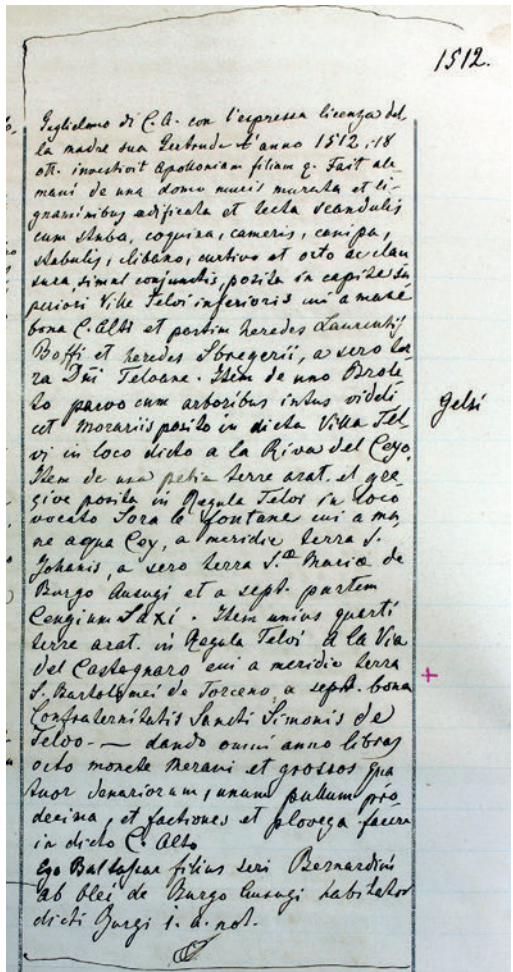 1512.
Guglielmo di C. A. con l'espressa licenza del
la madre sua Gertrude l'anno 1512, 18
ott. investivit Apolloniam filiam q. Fait ale
mani de una domo muris murata et li
gnaminibus edificata et tecta scandulis
cum stuba, coquina, cameris, canipa,
stabulis, clibano, curtivo et orto ac clau
sura, simul conjunctis, posita in capite su
periori Ville Telvi inferioris cui a mane
bona C. Alti et partim heredes Laurentij
Boffi et heredes Sbregerii, a sero ter
ra Dñi Teloane. Item de uno Brole
to parvo cum arboribus intus videli
cet morariis posito in dicta Villa Tel
vi in loco dicto a la Riva del Ceyo.
Gelsi
Item de una petia terre arat. et gre
give posita in Regula Telvi in loco
vocato Sora le fontane cui a ma
ne aqua Cey, a meridie terra S.
Johanis, a sero terra S.æ Mariæ de
Burgo Ausugi et a sept. partem
Cengium Saxi. Item unius quarti
terre arat. in Regula Telvi a la Via
del Castegnaro cui a meridie terra
S. Bartolomei de Torceno, a sept. bona
Confraternitatis Sancti Simonis de
Telvo. — dando omni anno libras
octo monete Merani et grossos qua
tuor denariorum, unum pullum pro
decima, et factiones et plovega facere
in dicto C. Alto
Ego Baltassar filius seri Bernardini
ab Olei de Burgo Ausugi habitator
dicti Burgi i. a. not.